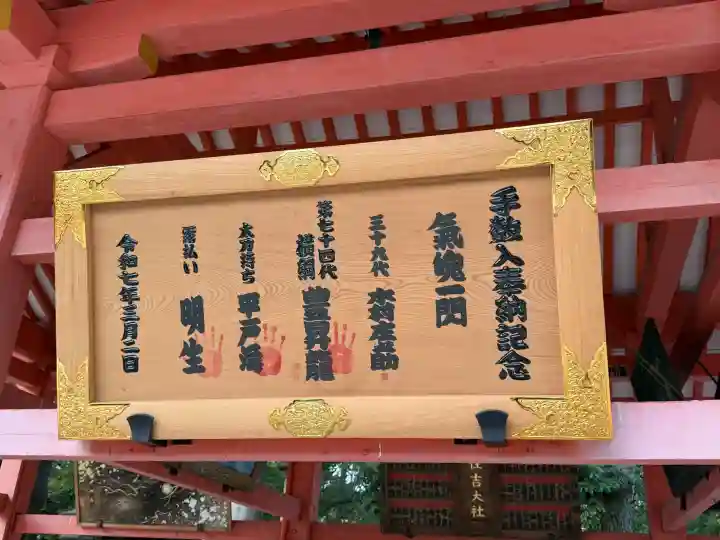 手数入奉納記念
氣魄一門
三十九代 木村庄之助
第七十四代
横綱 豊昇龍
太刀持ち 平戸海
露払い 明生
令和七年三月二日
住吉大社